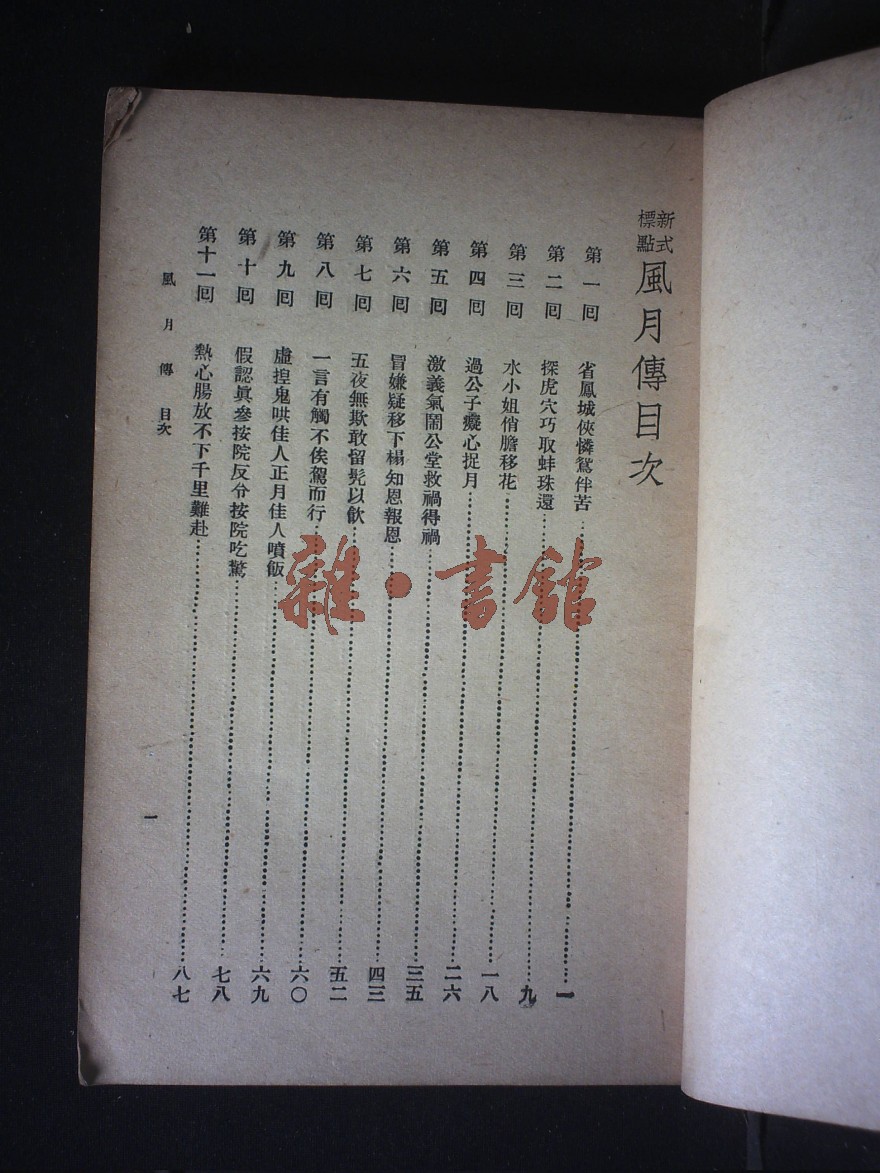 新式標點 風月傳目次
第一囘 省鳳城俠憐鴛伴苦…………一
第二囘 探虎穴巧取蚌珠還…………九
第三囘 水小姐俏膽移花…………一八
第四囘 過公子癡心捉月…………二六
第五囘 激義氣鬧公堂救禍得禍…………三五
第六囘 冒嫌疑移下榻知恩報恩…………四三
第七囘 五夜無欺敢留髠以飮…………五二
第八囘 一言有觸不俟駕而行…………六〇
第九囘 虛捏鬼哄佳人正月佳人噴飯…………六九
第十囘 假認眞參按院反令按院吃驚…………七八
第十一囘 熱心腸放不下千里難赴…………八七
風月傳 目次
一
雜·書館